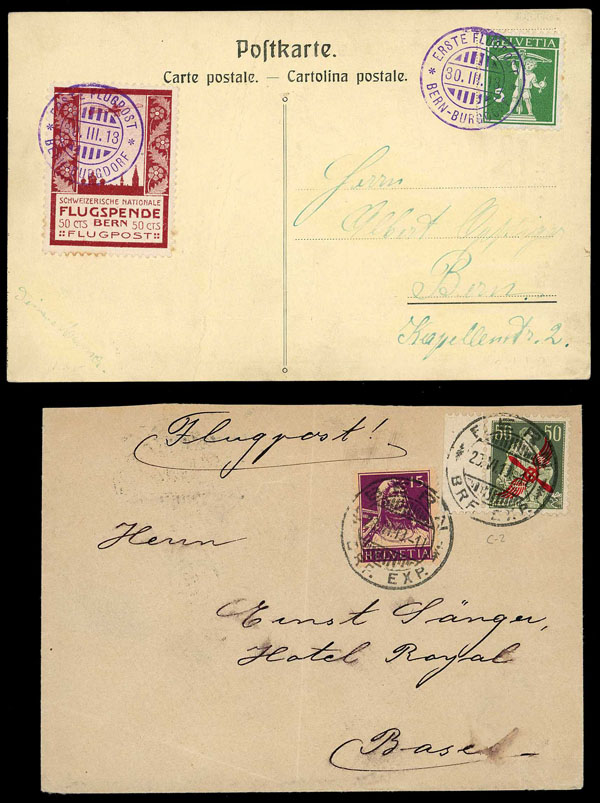 Postkarte.
Carte postale. — Cartolina postale.
* ERSTE FLUGPOST *
III. 13
BERN-BURGDORF
SCHWEIZERISCHE NATIONALE
FLUGSPENDE
50 CTS BERN 50 CTS
::FLUGPOST::
* ERSTE FLUG
30. III.
BERN-BURG
HELVETIA
5
Herrn
Albert
Bern.
Kapellenstr. 2.
Flugpost!
50 50
BRF. EXP.
C-2
15
HELVETIA
BRF. EXP.
Herrn
Ernst Sänger,
Hotel Royal
Basel